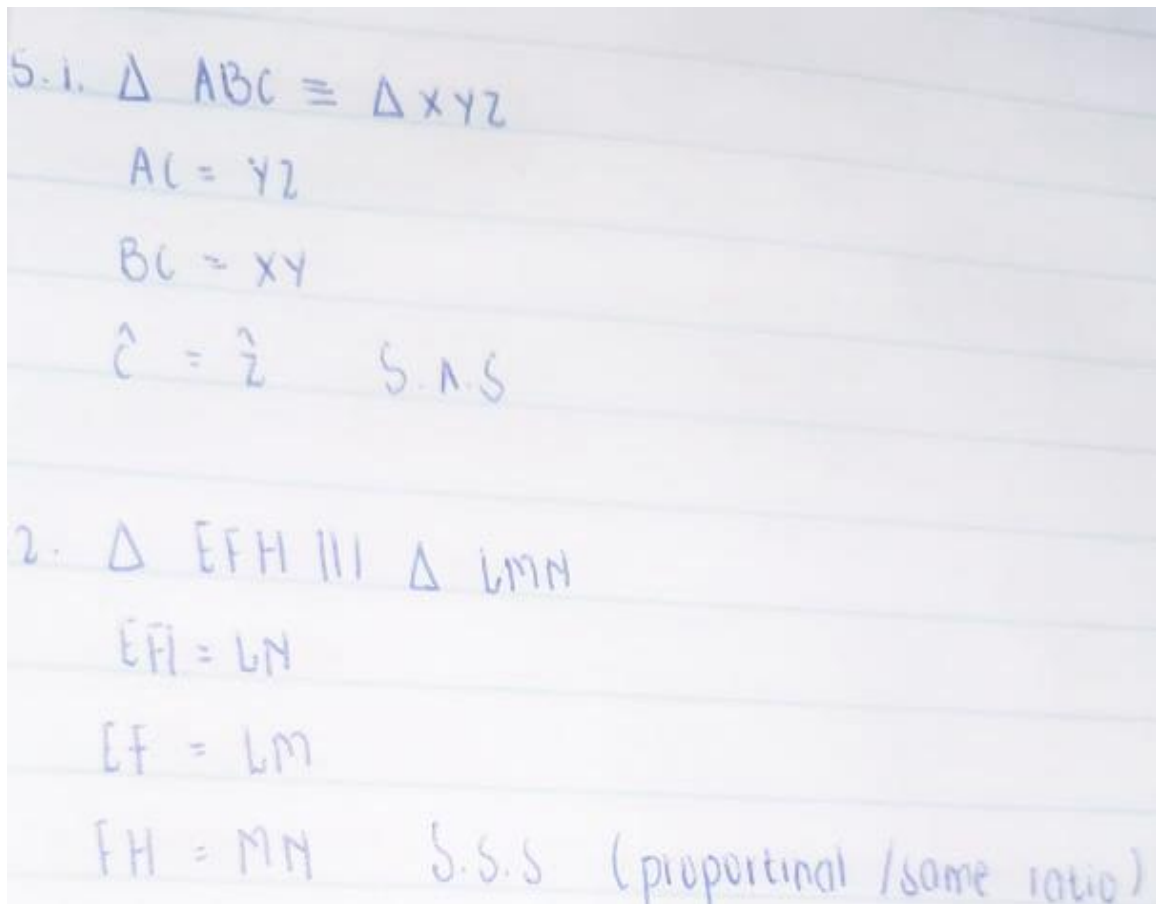 5.1. Δ ABC ≡ Δ XYZ
AC = YZ
BC = XY
Ĉ = Ẑ S.A.S
2. Δ EFH ||| Δ LMN
EH = LN
EF = LM
FH = MN S.S.S (proportinal / same ratio)